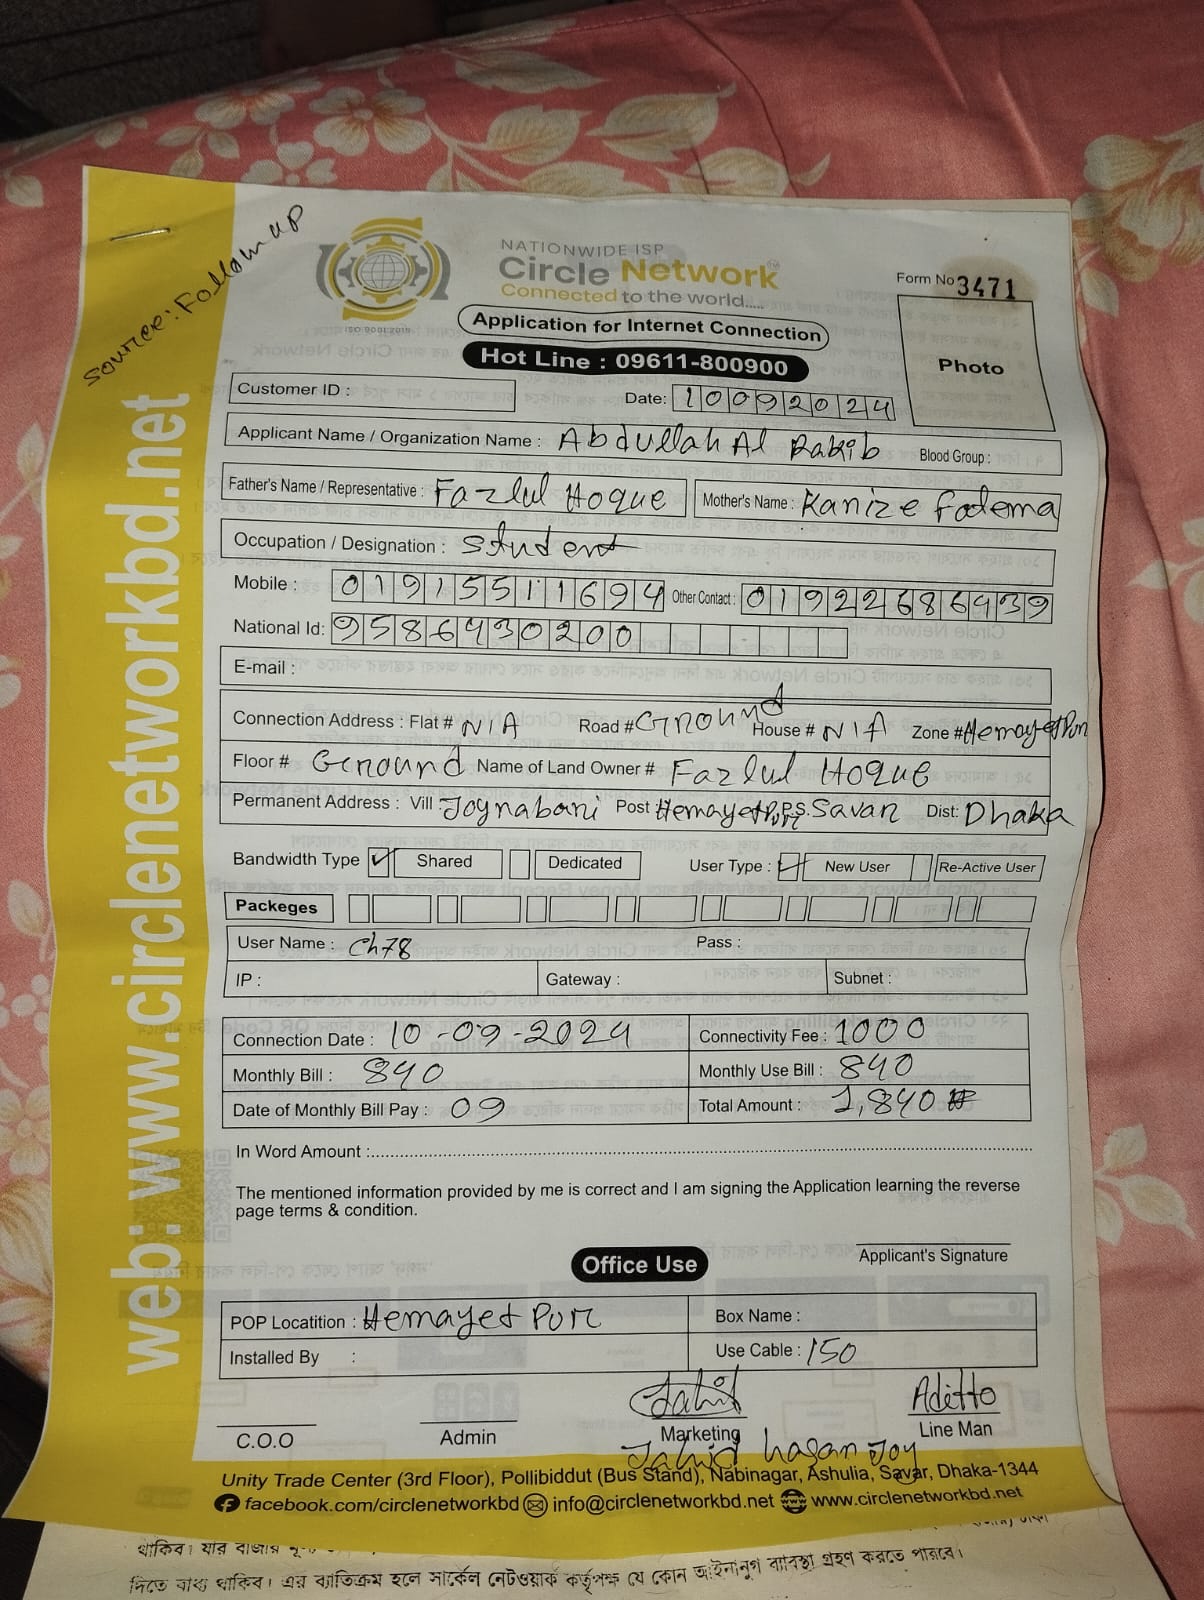 source: Follow up
NATIONWIDE ISP
Circle Network
Connected to the world.....
ISO 9001:2015
Form No 3471
Application for Internet Connection
Hot Line : 09611-800900
Photo
Customer ID :
Date: 10092024
Applicant Name / Organization Name : Abdullah Al Rakib Blood Group :
Father's Name / Representative : Fazlul Hoque Mother's Name : Kanize Fatema
Occupation / Designation : Student
Mobile : 01915511694 Other Contact : 01922686939
National Id: 9586430200
E-mail :
Connection Address : Flat # N/A Road # Ground House # N/A Zone # Hemayetpur
Floor # Ground Name of Land Owner # Fazlul Hoque
Permanent Address : Vill : Joynabari Post Hemayetpur P.S. Savar Dist: Dhaka
Bandwidth Type ✓ Shared Dedicated User Type : ✓ New User Re-Active User
Packeges
User Name : Ch78 Pass :
IP : Gateway : Subnet :
Connection Date : 10-09-2024 Connectivity Fee : 1000
Monthly Bill : 840 Monthly Use Bill : 840
Date of Monthly Bill Pay : 09 Total Amount : 1,840
In Word Amount :
The mentioned information provided by me is correct and I am signing the Application learning the reverse
page terms & condition.
Applicant's Signature
Office Use
POP Locatition : Hemayet Pur Box Name :
Installed By : Use Cable : 150
Jahid Aditto
C.O.O Admin Marketing Line Man
Jahid hasan Joy
Unity Trade Center (3rd Floor), Pollibiddut (Bus Stand), Nabinagar, Ashulia, Savar, Dhaka-1344
facebook.com/circlenetworkbd info@circlenetworkbd.net www.circlenetworkbd.net
web: www.circlenetworkbd.net
থাকিব। যার বাজার
দিতে বাধ্য থাকিব। এর ব্যতিক্রম হলে সার্কেল নেটওয়ার্ক কর্তৃপক্ষ যে কোন আইনানুগ ব্যবস্থা গ্রহণ করতে পারবে।